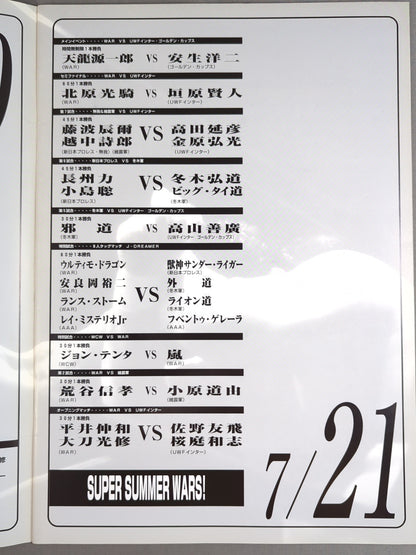 メインイベント・・・・・WAR VS UWFインター・ゴールデン・カップス
時間無制限1本勝負
天龍源一郎 VS 安生洋二
(WAR) (ゴールデン・カップス)
セミファイナル・・・・・WAR VS UWFインター
60分1本勝負
北原光騎 VS 垣原賢人
(WAR) (UWFインター)
45分1本勝負
藤波辰爾 高田延彦
越中詩郎 VS 金原弘光
(新日本プロレス・無我)(維震軍) (UWFインター)
新日本プロレス VS 冬木軍
45分1本勝負
長州力 冬木弘道
小島聡 VS ビッグ・タイ道
(新日本プロレス) (冬木軍)
第5試合・・・・・冬木軍 VS UWFインター ゴールデン・カップス
30分1本勝負
邪道 VS 高山善廣
(冬木軍) (UWFインター ゴールデン・カップス)
特別試合・・・・・8人タッグマッチ J-DREAMER
60分1本勝負
ウルティモ・ドラゴン 獣神サンダー・ライガー
(WAR) (新日本プロレス)
安良岡裕二 外道
(WAR) (冬木軍)
VS
ランス・ストーム ライオン道
(WAR) (冬木軍)
レイ・ミステリオJr フベントゥ・ゲレーラ
(AAA) (AAA)
特別試合・・・・・WCW VS WAR
30分1本勝負
ジョン・テンタ VS 嵐
(WCW) (WAR)
第2試合・・・・・WAR VS 維震軍
30分1本勝負
荒谷信孝 VS 小原道由
(WAR) (維震軍)
オープニングマッチ・・・・・WAR VS UWFインター
30分1本勝負
平井伸和 佐野友飛
大刀光修 VS 桜庭和志
(WAR) (UWFインター)
SUPER SUMMER WARS!
7/21